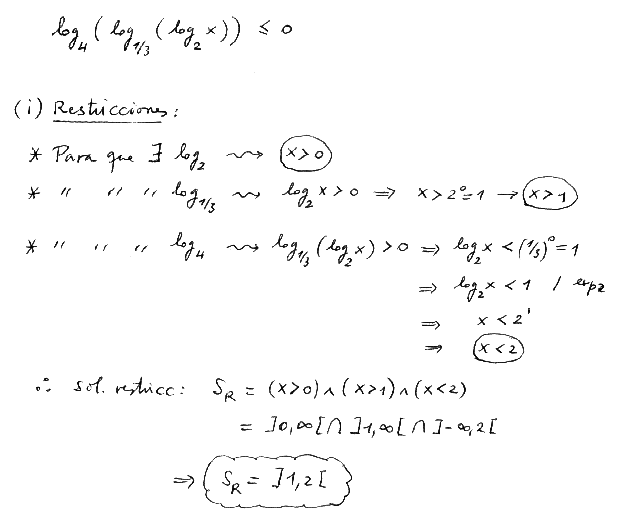 log₄ ( log₁/₃ ( log₂ x)) ≤ 0
(i) Restricciones:
* Para que ∃ log₂ ⇝ x>0
* " " " log₁/₃ ⇝ log₂ x>0 ⇒ x>2⁰=1 → x>1
* " " " log₄ ⇝ log₁/₃ (log₂ x) >0 ⇒ log₂ x < (1/3)⁰=1
⇒ log₂ x < 1 / exp₂
⇒ x < 2¹
⇒ x<2
∴ sol. restricc: S_R = (x>0) ∧ (x>1) ∧ (x<2)
= ]0,∞[ ∩ ]1,∞[ ∩ ]-∞,2[
⇒ S_R = ]1,2[